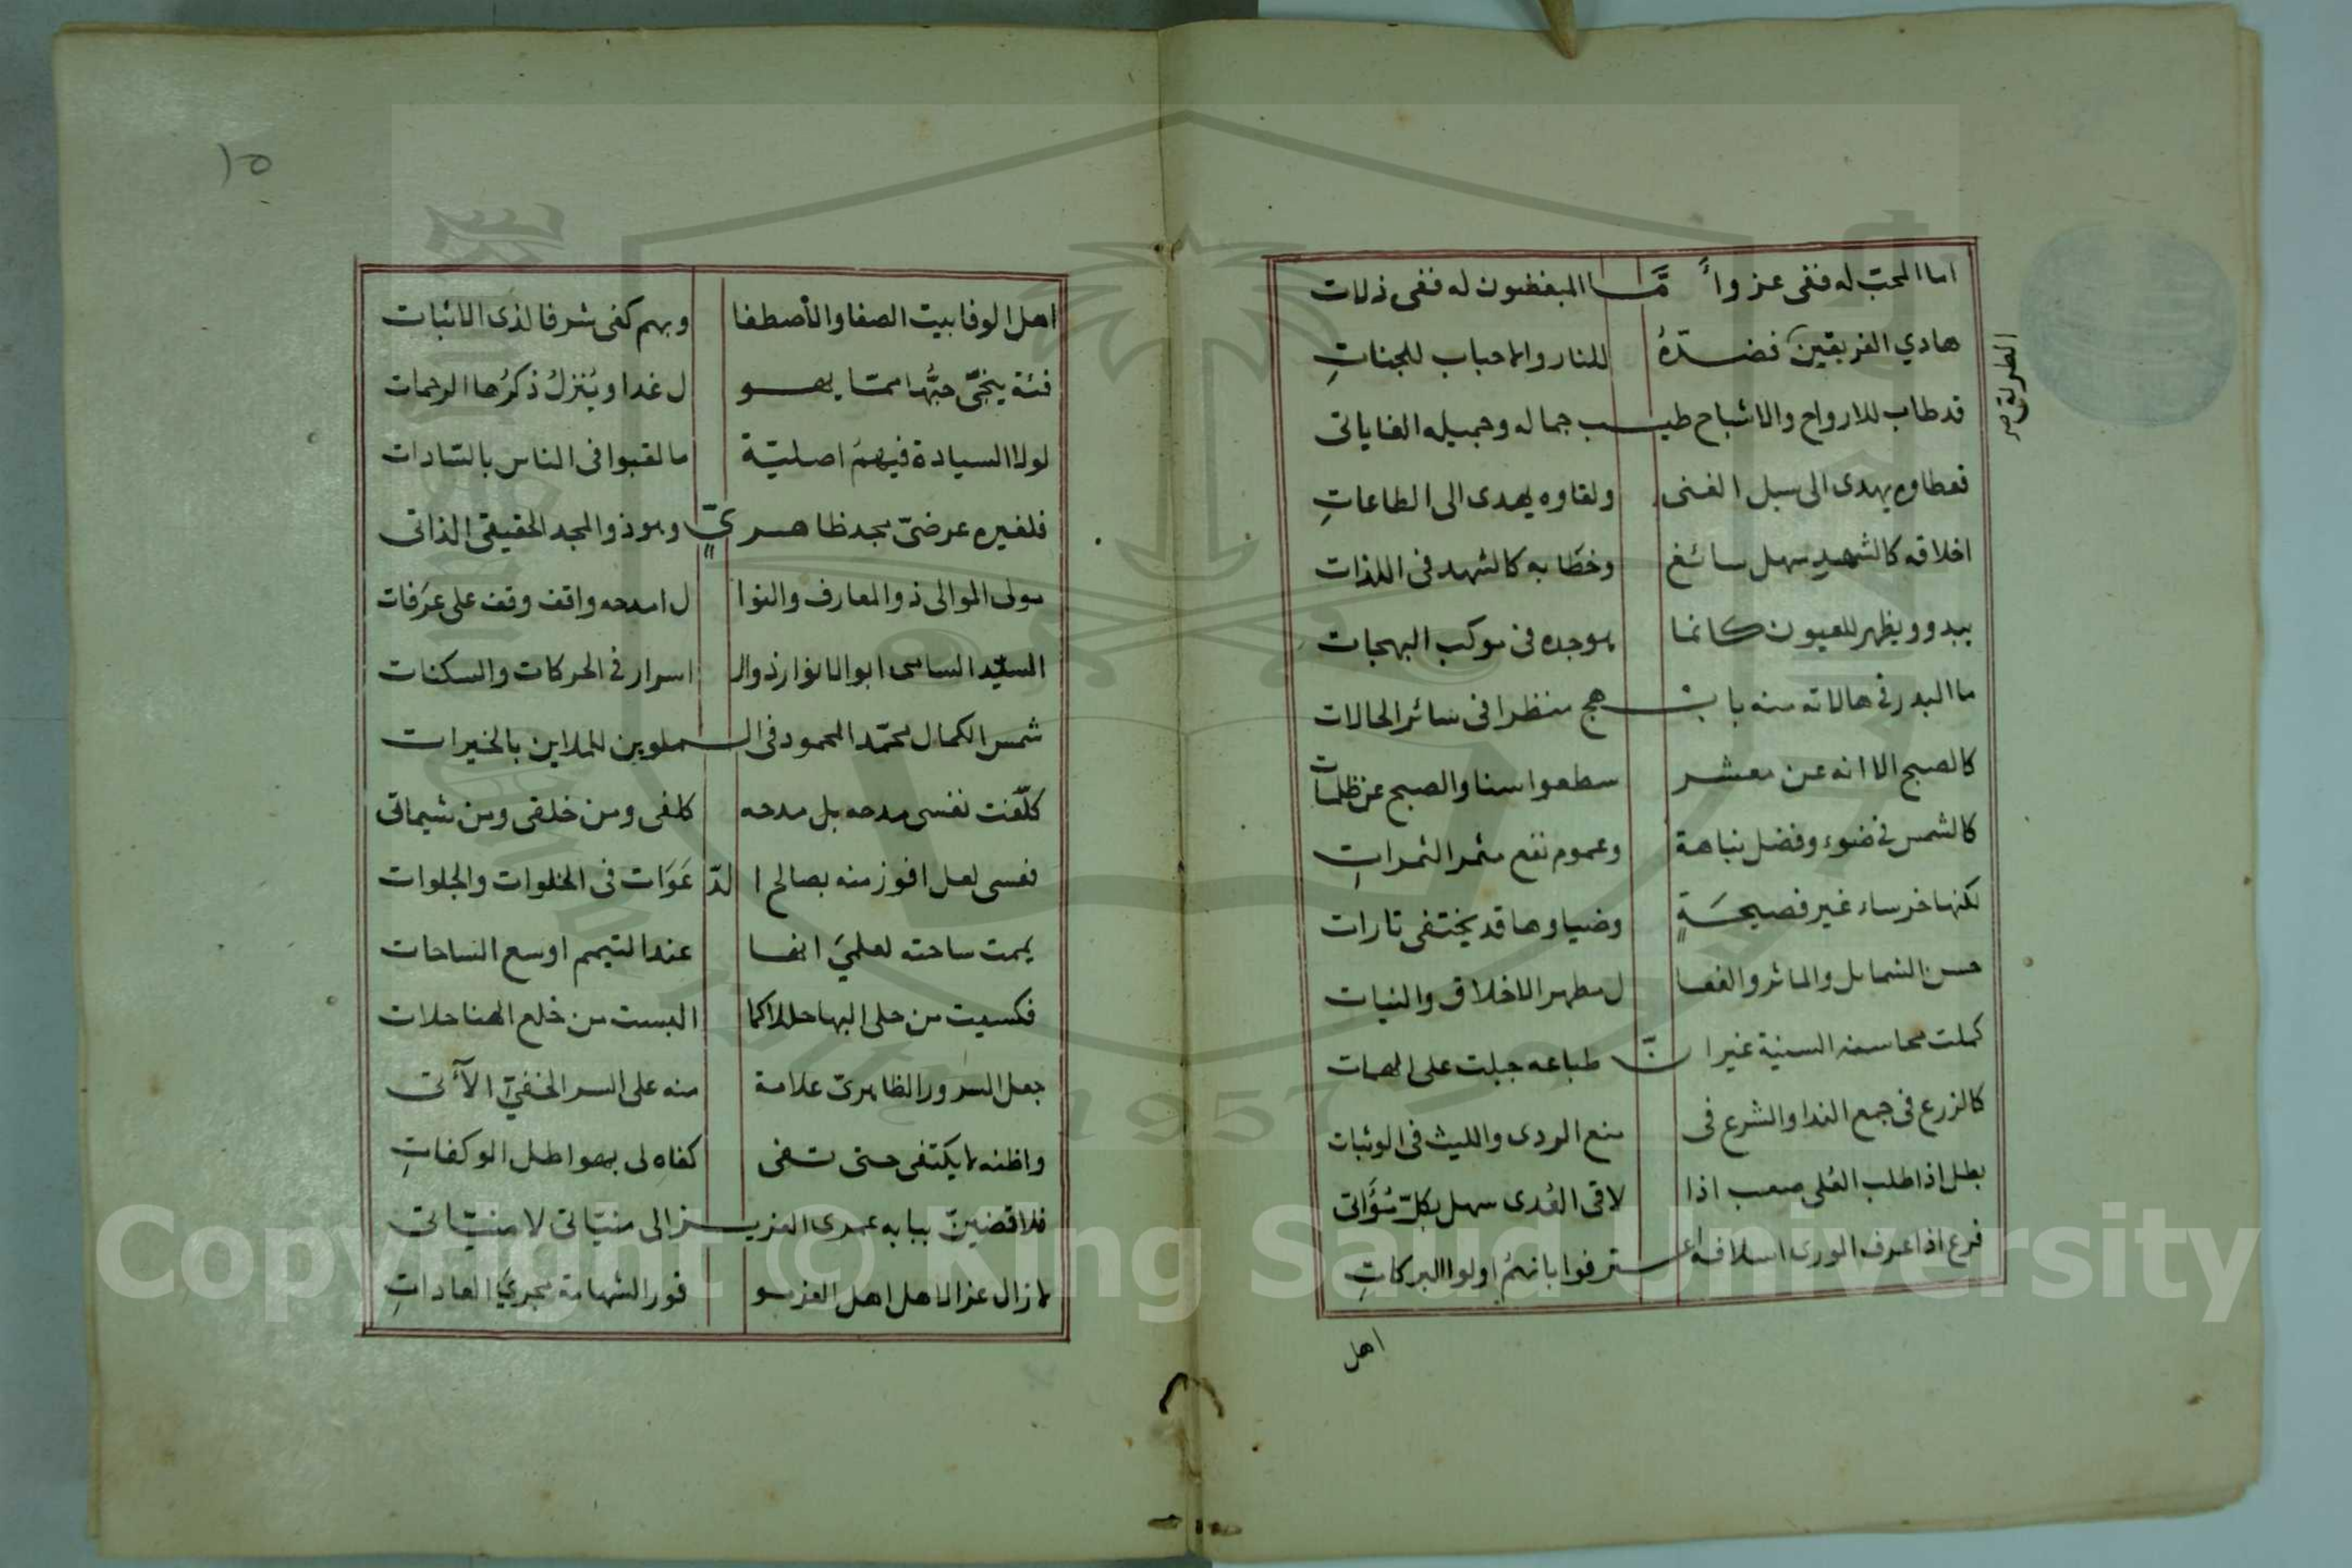 اما المحبّ له ففى عز واً مَّــا المبغضون له ففى ذلات
هادي الفريقين فضــدّهُ للنار والاحباب للجناتِ
الطريق صح
قد طاب للارواح والاشباح طيــب جماله وجميله الغاياتى
فعطاوه يهدى الى سبل الغنى ولقاوه يهدى الى الطاعاتِ
اخلاقه كالشهد سهل سائغ وخطابه كالشهد فى اللذات
يبدو ويظهر للعيون كانما بوجده فى موكب البهجات
ما البدر فى هالاته منه باﺑــهج منظرا فى سائر الحالات
كالصبح الا انه عن معشــر سطعوا سنا والصبح عن ظلمات
كالشمس فى ضوء وفضل نباهة وعموم نفع مثمر الثمراتِ
لكنها خرساء غير فصيحةٍ وضياوها قد يختفى تارات
حسن الشمايل والماثر والفعا ل مطهر الاخلاق والنيات
كملت محاسنه السنية غير ا نّ طباعه جبلت على الهمات
كالزرع فى جمع الندا والشرع فى منع الردى والليث فى الوثبات
بطل اذا طلب العُلى صعب اذا لاقى العُدى سهل بكلّ مُؤَاتى
فرع اذا عرف الورى اسلافه اعــترفوا بانهمُ اولوا البركاتِ
اهل
١٥
اهل الوفا بيت الصفا والأصطفا وبهم كفى شرفا لذى الاثبات
فئة ينجّى حبُّها ممّا يهــو ل غدا ويُنزلُ ذكرُها الرحمات
لولا السيادة فيهمُ اصليّة ما لقبوا فى الناس بالسّادات
فلغيره عرضىّ مجد ظاهــريٍّ وهو ذو المجد الحقيقى الذاتى
مولى الموالى ذو المعارف والنوا ل امدحه واقف وقف على عرَفات
السيّد السامى ابو الانوار ذو الـ اسرار فى الحركات والسكنات
شمس الكمال محمّد المحمود فى الــملوين للملاين بالخيرات
كلّفت نفسى مدحه بل مدحه كلفى ومن خلقى ومن شيماتى
نفسى لعل افوز منه بصالح ا لدّ عَوَات فى الخلوات والجلوات
يممت ساحته لعلميَ انها عند التيمم اوسع الساحات
فكسيت من حلى البها حللا كما البست من خلع الهنا حلات
جعل السرور الظاهرىّ علامة منه على السر الخفيّ الآتى
واظنه لا يكتفى حتى تــفى كفاه لى بهواطل الوكفاتِ
فلاقضينّ ببابه عمرى العزيــز الى منيّاتى لا منيّاتى
لا زال عز الاهل اهل العز مــو فور الشهامة مجريَ العاداتِ
Copyright © King Saud University
1957